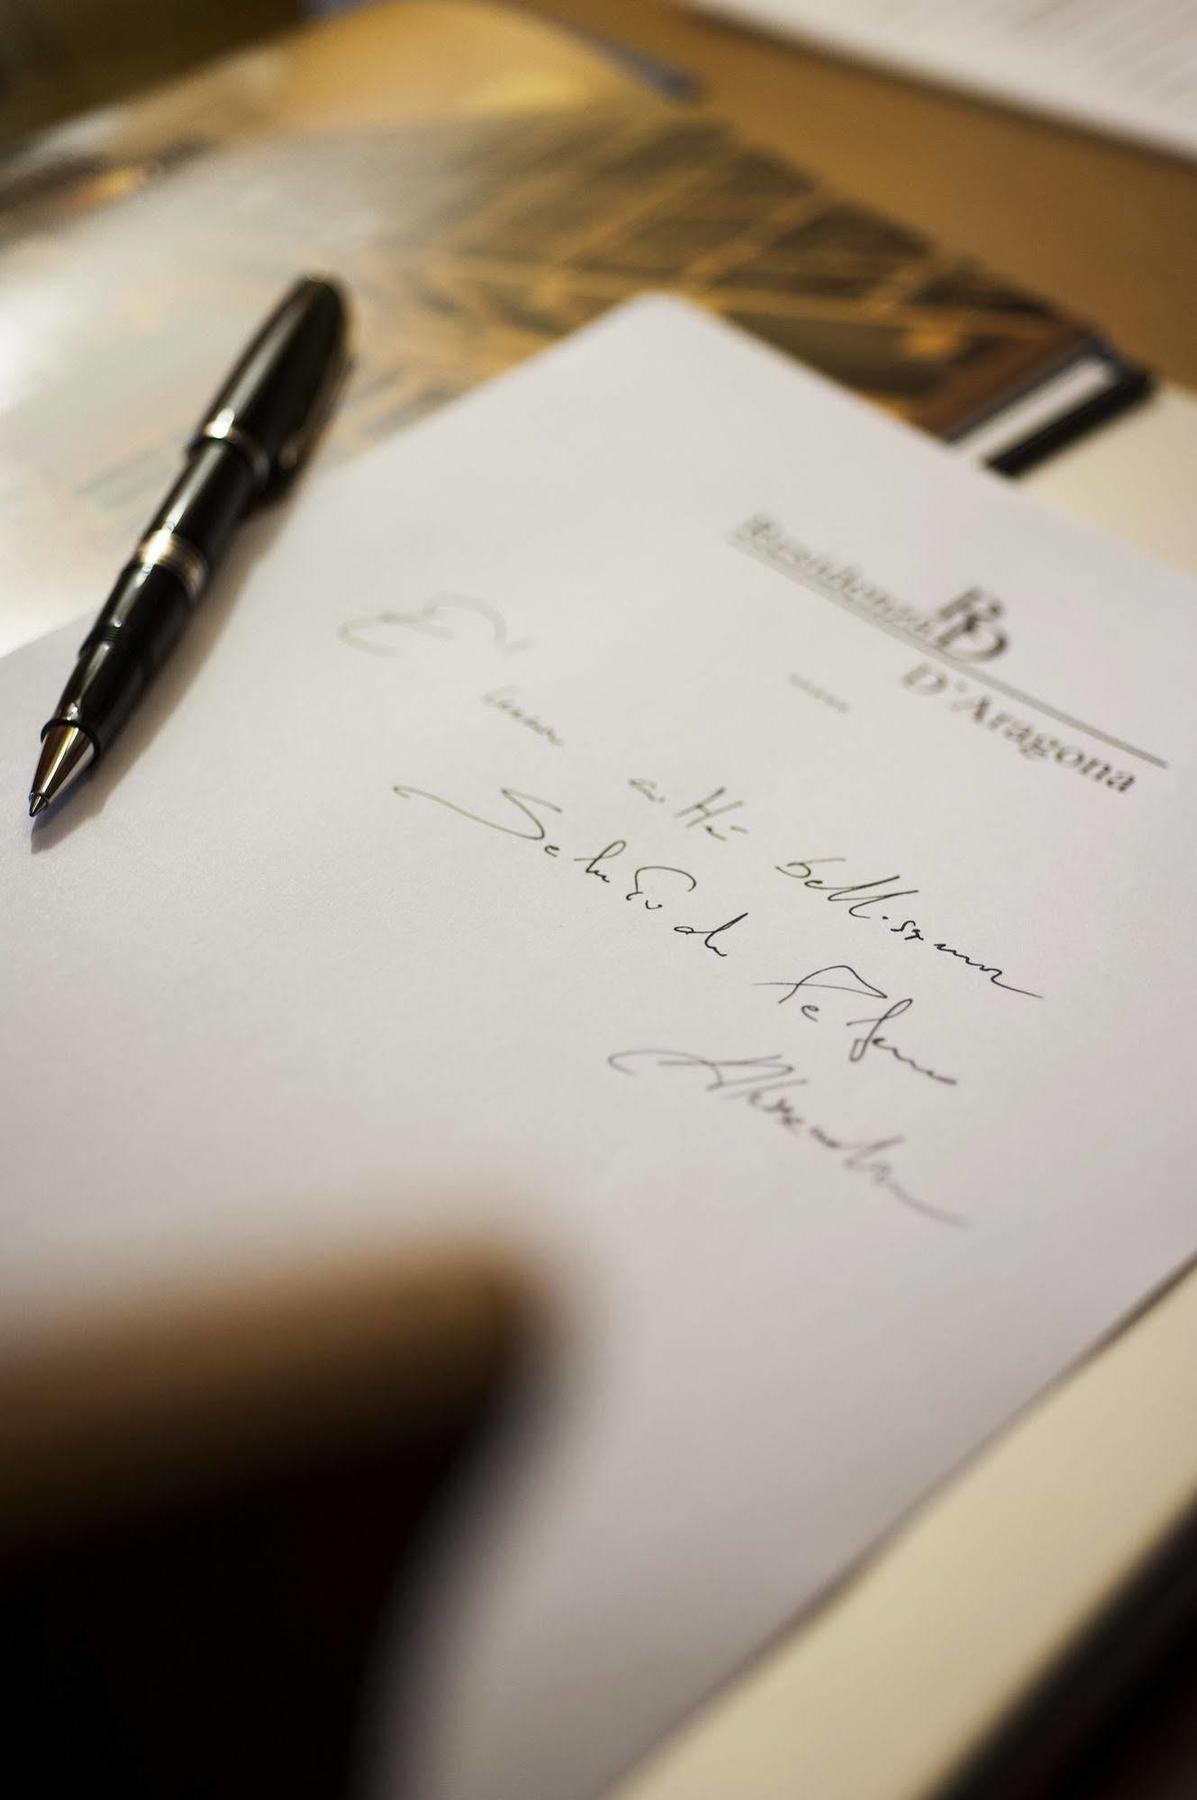 Residence
RD
D'Aragona
E' una città bellissima
Saluto da Palermo
Alessandra